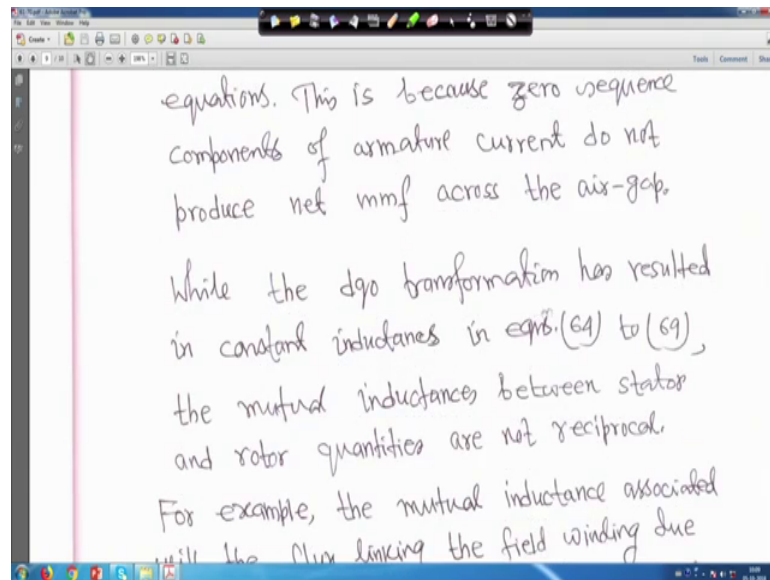 File Edit View Window Help
Create
Tools Comment
equations. This is because zero sequence
components of armature current do not
produce net mmf across the air-gap.
While the dqo transformation has resulted
in constant inductances in eqns.(64) to (69),
the mutual inductances between stator
and rotor quantities are not reciprocal.
For example, the mutual inductance associated
with the flux linking the field winding due